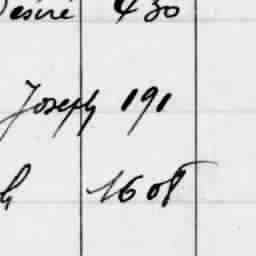 Désiré 430
Joseph 191
1608